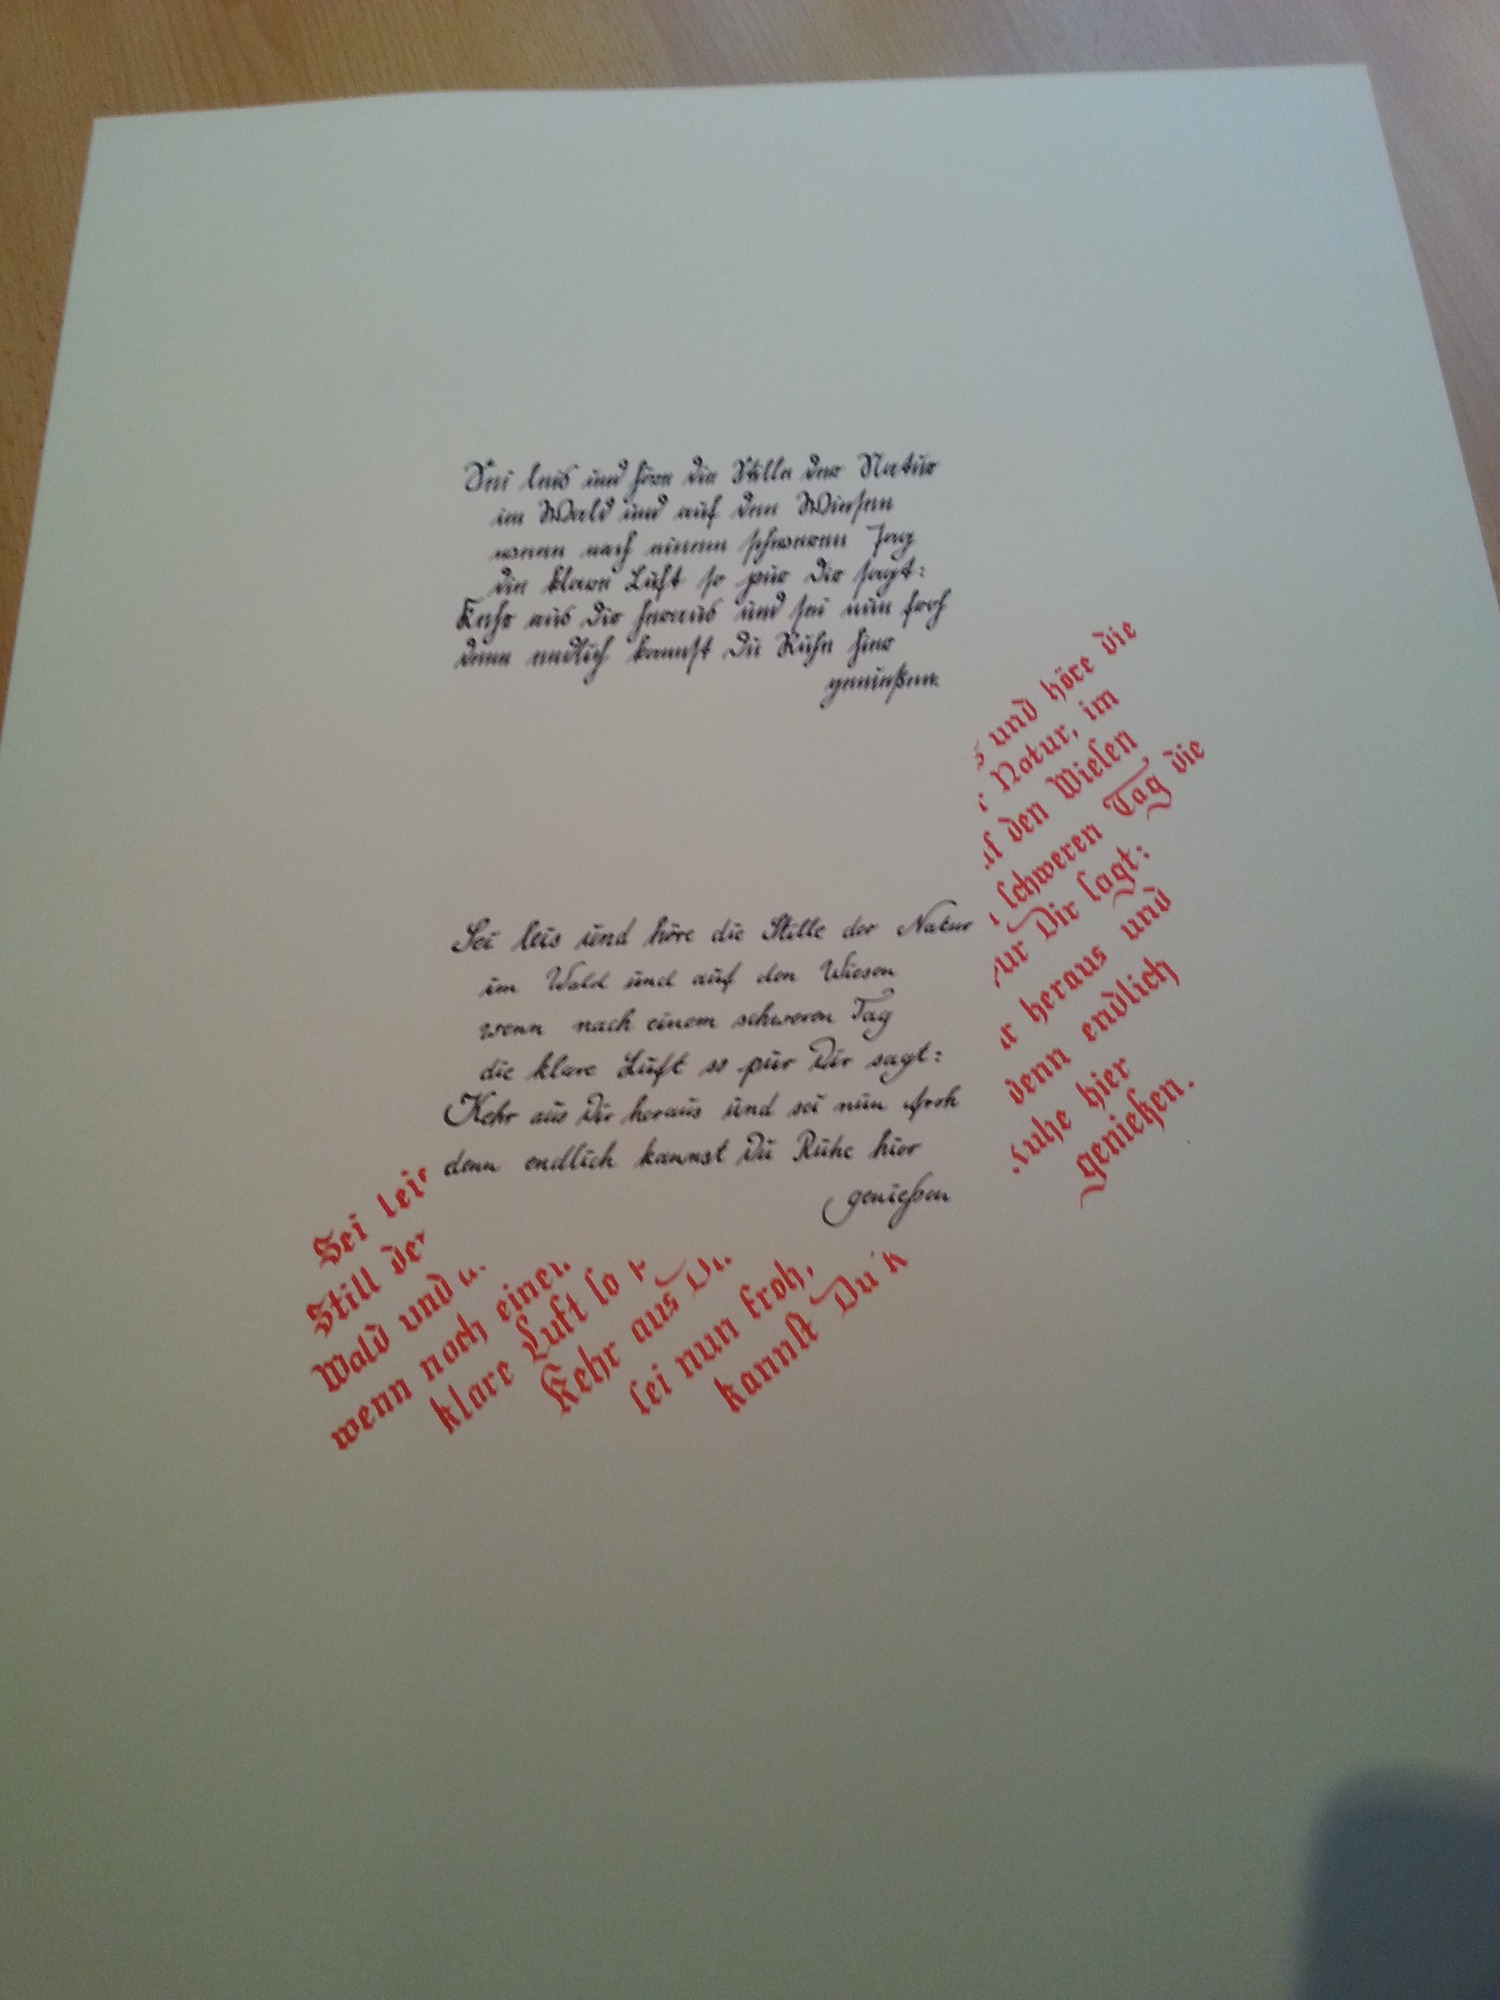 Sei leis und höre die Stille der Natur
im Wald und auf den Wiesen
wenn nach einem schweren Tag
die klare Luft so pur Dir sagt:
Kehr aus Dir heraus und sei nun froh
denn endlich kannst Du Ruhe hier
genießen.
Sei leis und höre die Stille der Natur
im Wald und auf den Wiesen
wenn nach einem schweren Tag
die klare Luft so pur Dir sagt:
Kehr aus Dir heraus und sei nun froh
denn endlich kannst Du Ruhe hier
genießen
Sei leis und höre die
Still der Natur, im
Wald und auf den Wiesen
wenn nach einem schweren Tag die
klare Luft so pur Dir sagt:
Kehr aus Dir heraus und
sei nun froh, denn endlich
kannst Du Ruhe hier
genießen.